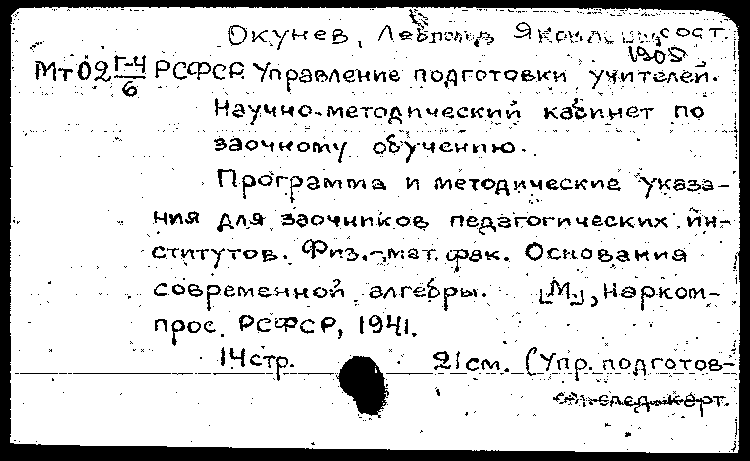 Окунев, Леопольд Яковлевич, сост.
1905
Мт02 Г-4/6 РСФСР. Управление подготовки учителей.
Научно-методический кабинет по
заочному обучению.
Программа и методические указа-
ния для заочников педагогических ин-
ститутов. Физ.-мат. фак. Основания
современной алгебры. [М.], Нарком-
прос РСФСР, 1941.
14 стр. 21 см. (Упр. подготов-
см. след. карт.